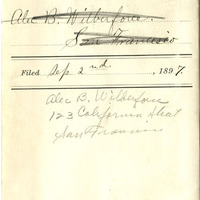 Alec B. Wilberforce.
San Francisco
Filed Sep. 2nd, 1897.
Alec B. Wilberforce
123 California Street
San Francisco